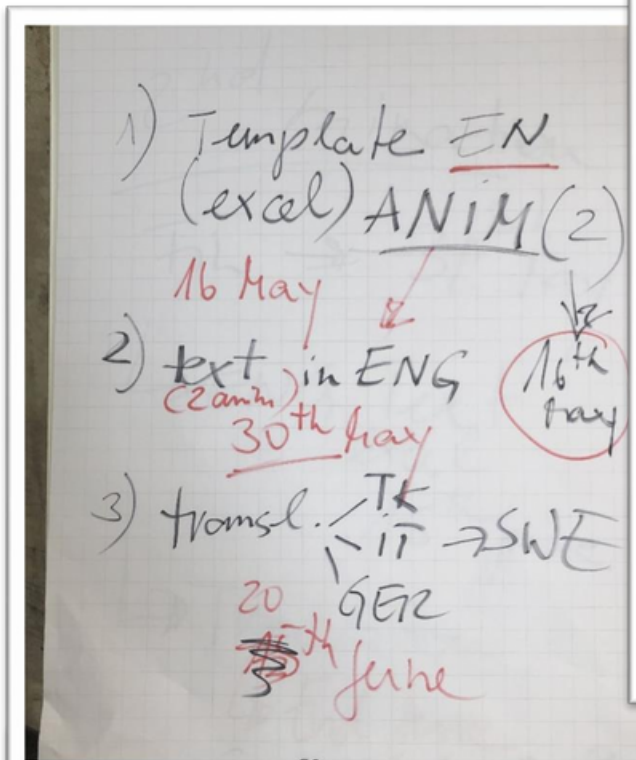 1) Template EN
(excel) ANIM (2)
16 May
16th
May
2) text in ENG
(2 anim)
30th May
3) transl. TK
IT → SWE
GER
20
th June